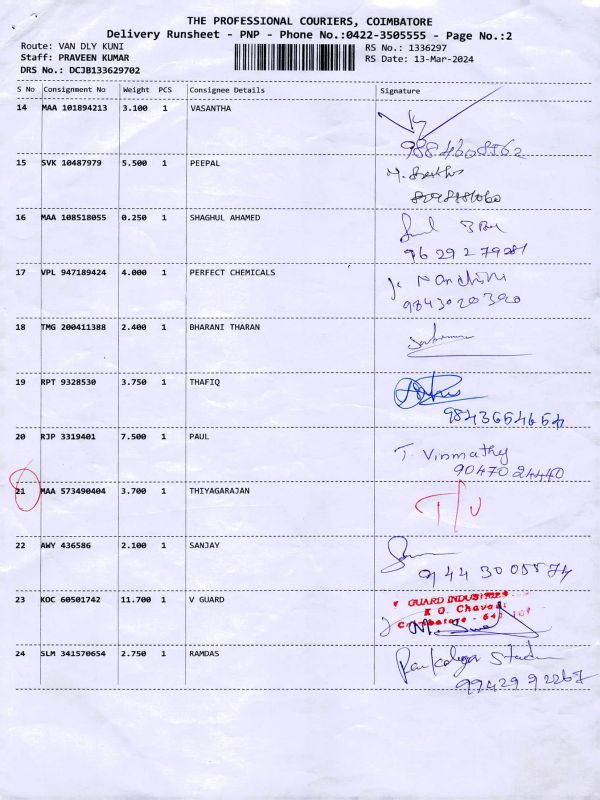 THE PROFESSIONAL COURIERS, COIMBATORE
Delivery Runsheet - PNP - Phone No.:0422-3505555 - Page No.:2
Route: VAN DLY KUNI RS No.: 1336297
Staff: PRAVEEN KUMAR RS Date: 13-Mar-2024
DRS No.: DCJB133629702
S No Consignment No Weight PCS Consignee Details Signature
14 MAA 101894213 3.100 1 VASANTHA
15 SVK 10487979 5.500 1 PEEPAL
16 MAA 108518055 0.250 1 SHAGHUL AHAMED
17 VPL 947189424 4.000 1 PERFECT CHEMICALS
9843020320
18 TMG 200411388 2.400 1 BHARANI THARAN
19 RPT 9328530 3.750 1 THAFIQ
9843654654
20 RJP 3319401 7.500 1 PAUL
T. Vinmathy
9047024440
21 MAA 573490404 3.700 1 THIYAGARAJAN
22 AWY 436586 2.100 1 SANJAY
9443005574
23 KOC 60501742 11.700 1 V GUARD
GUARD INDUSTRIES
K G. Chavadi
24 SLM 341570654 2.750 1 RAMDAS
9942992267